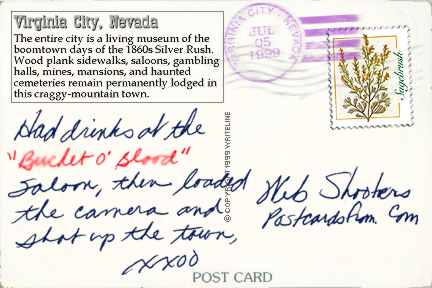 Virginia City, Nevada
The entire city is a living museum of the
boomtown days of the 1860s Silver Rush.
Wood plank sidewalks, saloons, gambling
halls, mines, mansions, and haunted
cemeteries remain permanently lodged in
this craggy-mountain town.
VIRGINIA CITY, NEVADA
JUL
05
1999
Sagebrush
Had drinks at the
"Bucket O' Blood"
Saloon, then loaded
the camera and
shot up the town,
XXOO
© COPYRIGHT 1999 WRITELINE
Web Shooters
Postcardsfrom.Com
POST CARD